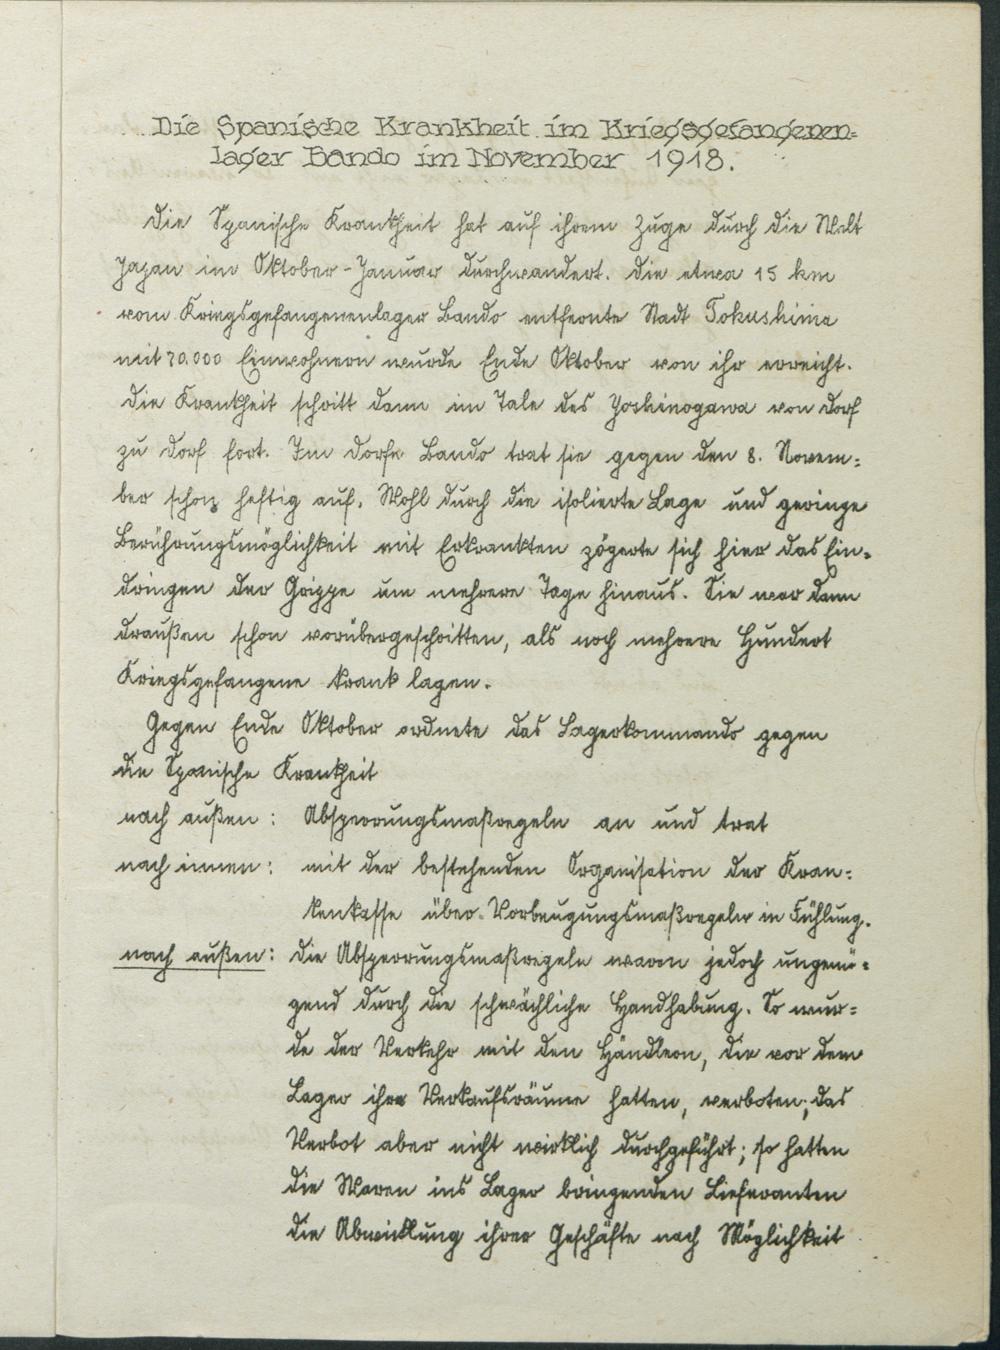 Die Spanische Krankheit im Kriegsgefangenen=
lager Bando im November 1918.
Die Spanische Krankheit hat auf ihrem Zuge durch die Welt
Japan im Oktober-Januar durchwandert. Die etwa 15 km
vom Kriegsgefangenenlager Bando entfernte Stadt Tokushima
mit 70.000 Einwohnern wurde Ende Oktober von ihr erreicht.
Die Krankheit schritt dann im Tale des Yoshinogawa von Dorf
zu Dorf fort. Im Dorfe Bando trat sie gegen den 8. Novem=
ber schon heftig auf. Wohl durch die isolierte Lage und geringe
Berührungsmöglichkeit mit Erkrankten zögerte sich hier das Ein=
dringen der Grippe um mehrere Tage hinaus. Sie war dann
draußen schon vorübergeschritten, als noch mehrere Hundert
Kriegsgefangene krank lagen.
Gegen Ende Oktober ordnete das Lagerkommando gegen
die Spanische Krankheit
nach außen: Absperrungsmaßregeln an und trat
nach innen: mit der bestehenden Organisation der Kran=
kenkasse über Vorbeugungsmaßregeln in Fühlung.
nach außen: Die Absperrungsmaßregeln waren jedoch ungenü=
gend durch die schwächliche Handhabung. So wur=
de der Verkehr mit den Händlern, die vor dem
Lager ihre Verkaufsräume hatten, verboten; das
Verbot aber nicht wirklich durchgeführt; so hatten
die Waren ins Lager bringenden Lieferanten
die Abwicklung ihrer Geschäfte nach Möglichkeit